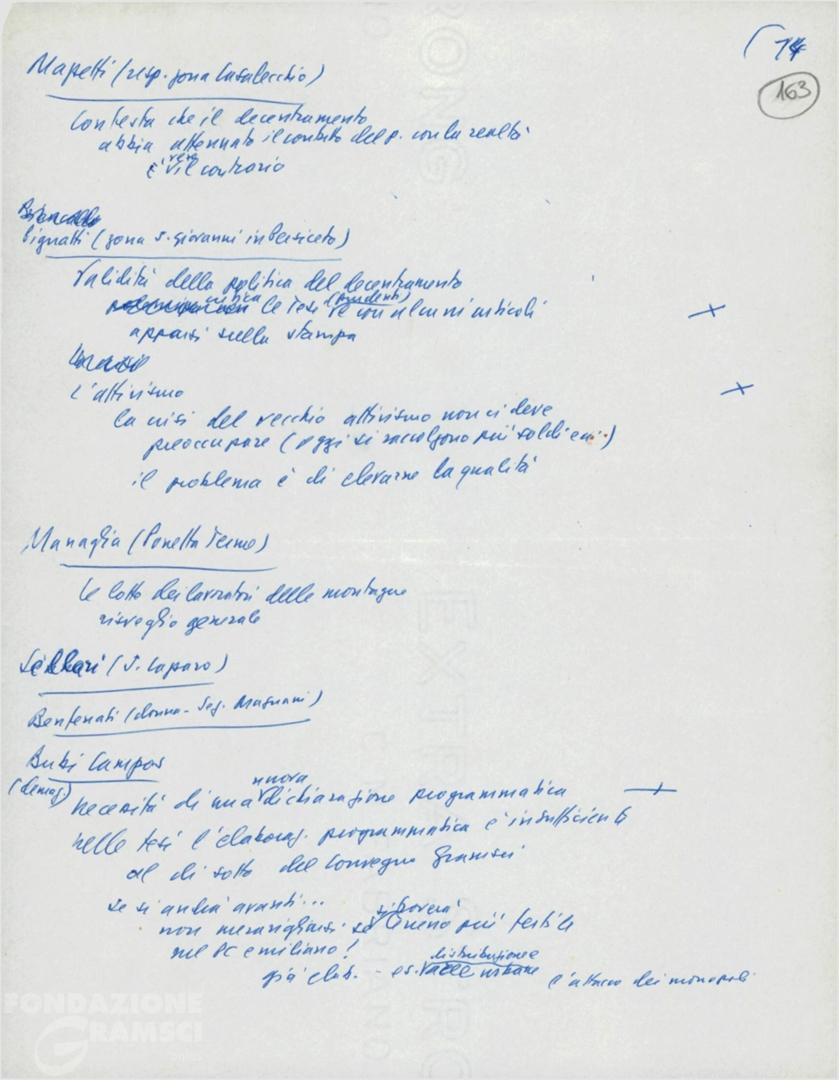 14
163
Mapelli (resp. zona Casalecchio)
Contesta che il decentramento
abbia attenuato il contatto del p. con la realtà
è vero il contrario
Pignatti (zona S. Giovanni in Persiceto)
Validità della politica del decentramento
critica le tesi (prudenti) e con alcuni articoli
apparsi sulla stampa
L'attivismo
la crisi del vecchio attivismo non ci deve
preoccupare (oggi si raccolgono più soldi ecc..)
il problema è di elevarne la qualità
Managlia (Porretta Terme)
le lotte dei lavoratori delle montagne
risveglio generale
(S. Lazzaro)
Bentenati (donna - Seg. Magnani)
Bubi Campos
(demog)
necessità di una nuova dichiarazione programmatica
nelle tesi l'elaboraz. programmatica è insufficiente
al di sotto del Convegno Gramsci
se si andrà avanti...
non meravigliarsi se si troverà terreno più fertile
nel PC emiliano!
già elab. - es. distribuzione
l'attacco dei monopoli
FONDAZIONE
GRAMSCI
EXTRA STRONG
FABRIANO